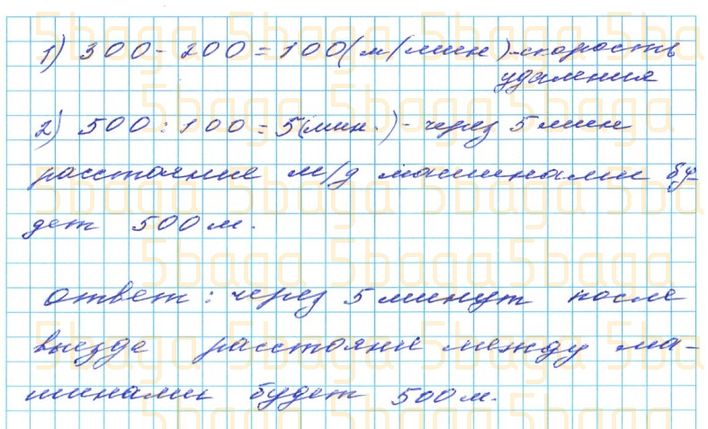 1) 300 - 200 = 100 (м/мин) - скорость
удаления
2) 500 : 100 = 5 (мин.) - через 5 мин
расстояние м/д машинами бу-
дет 500 м.
Ответ: через 5 минут после
выезда расстояние между ма-
шинами будет 500 м.